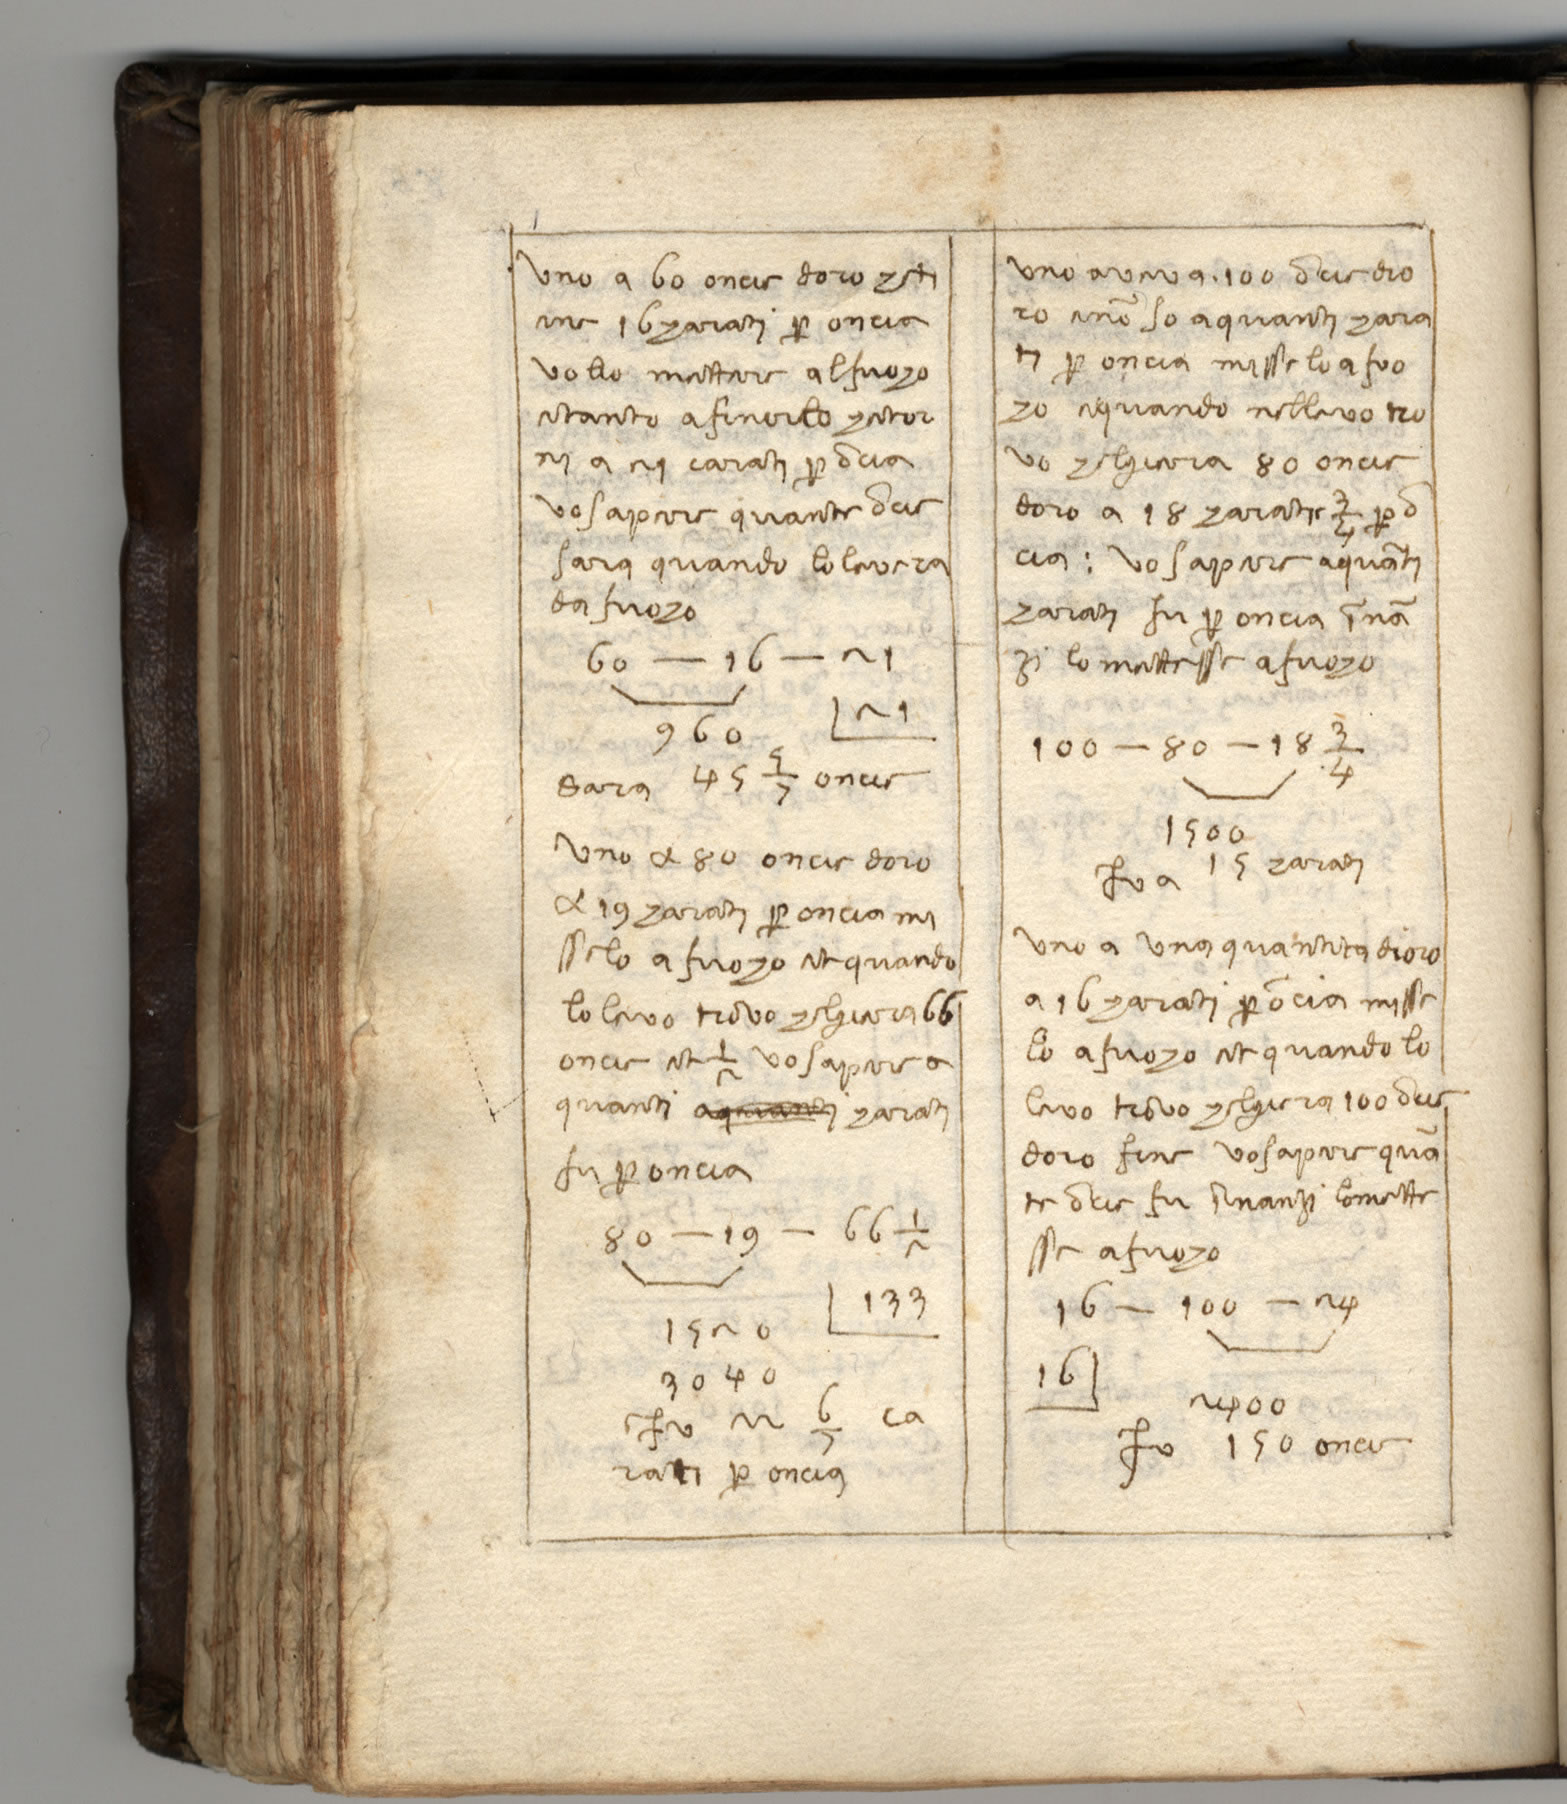 Uno a 60 oncie doro che ti
ene 16 charati ꝑ oncia
vollo mettere al fuozo
et tanto afinarllo che tor
ni a 21 carati ꝑ ōcia
vo sapere quante ōcie
sara quando lo levera
da fuozo
60 — 16 — 21
960 21
Sara 45 5/7 oncie
Uno a 80 oncie doro
a 19 zarati ꝑ oncia mi
sselo a fuozo et quando
lo levo trovo che gliera 66
oncie et 1/2 vo sapere a
quanti zarati
fu ꝑ oncia
80 — 19 — 66 1/2
1520 133
3040
fu 22 6/7 ca
rati ꝑ oncia
uno aveva 100 ōcie dio
ro e nō so a quanti zara
ti ꝑ oncia misselo a fuo
zo e quando nellevo tro
vo che gliera 80 oncie
doro a 18 zarati e 3/4 ꝑ ō
cia : vo sapere a quāti
zarati fu ꝑ oncia īnā
zi lo mettesse a fuozo
100 — 80 — 18 3/4
1500
fu a 15 zarati
uno a una quantita dioro
a 16 zarati ꝑ ōcia misse
lo a fuozo et quando lo
levo trovo che gliera 100 ōcie
doro fine vo sapere quā
te ōcie fu īnanzi lo mette
sse a fuozo
16 — 100 — 24
16
2400
fu 150 oncie